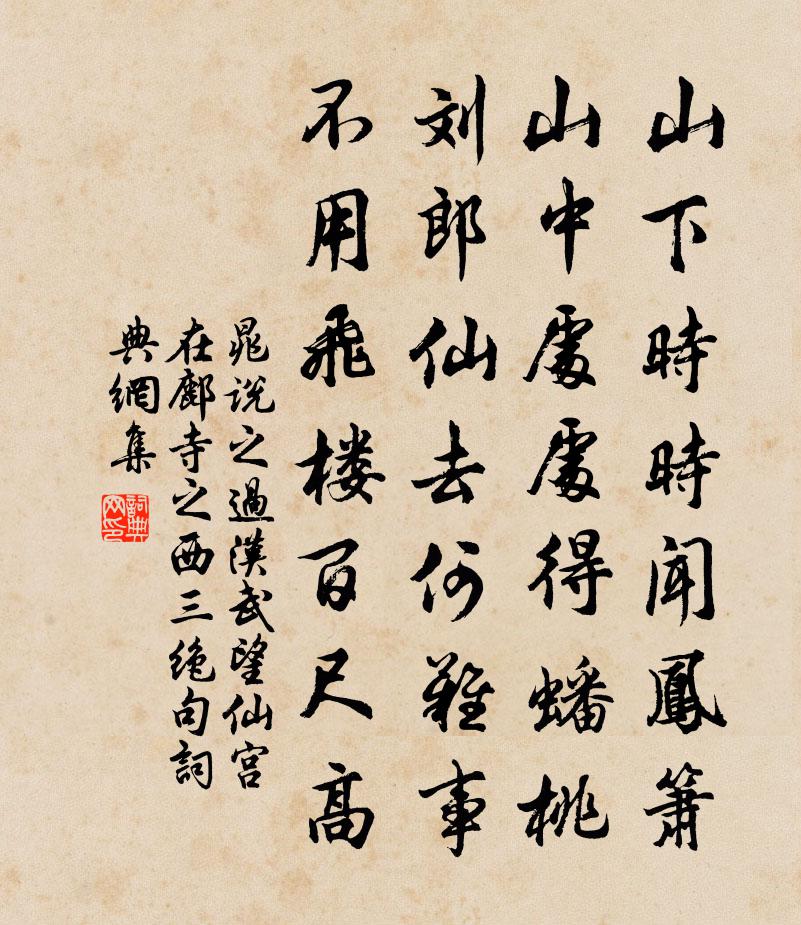 山下時時聞鳳簫
山中處處得蟠桃
刘郎仙去何難事
不用飛楼百尺高
晁说之過漢武望仙宮
在鄜寺之西三绝句詞
典網集
詞典
网印